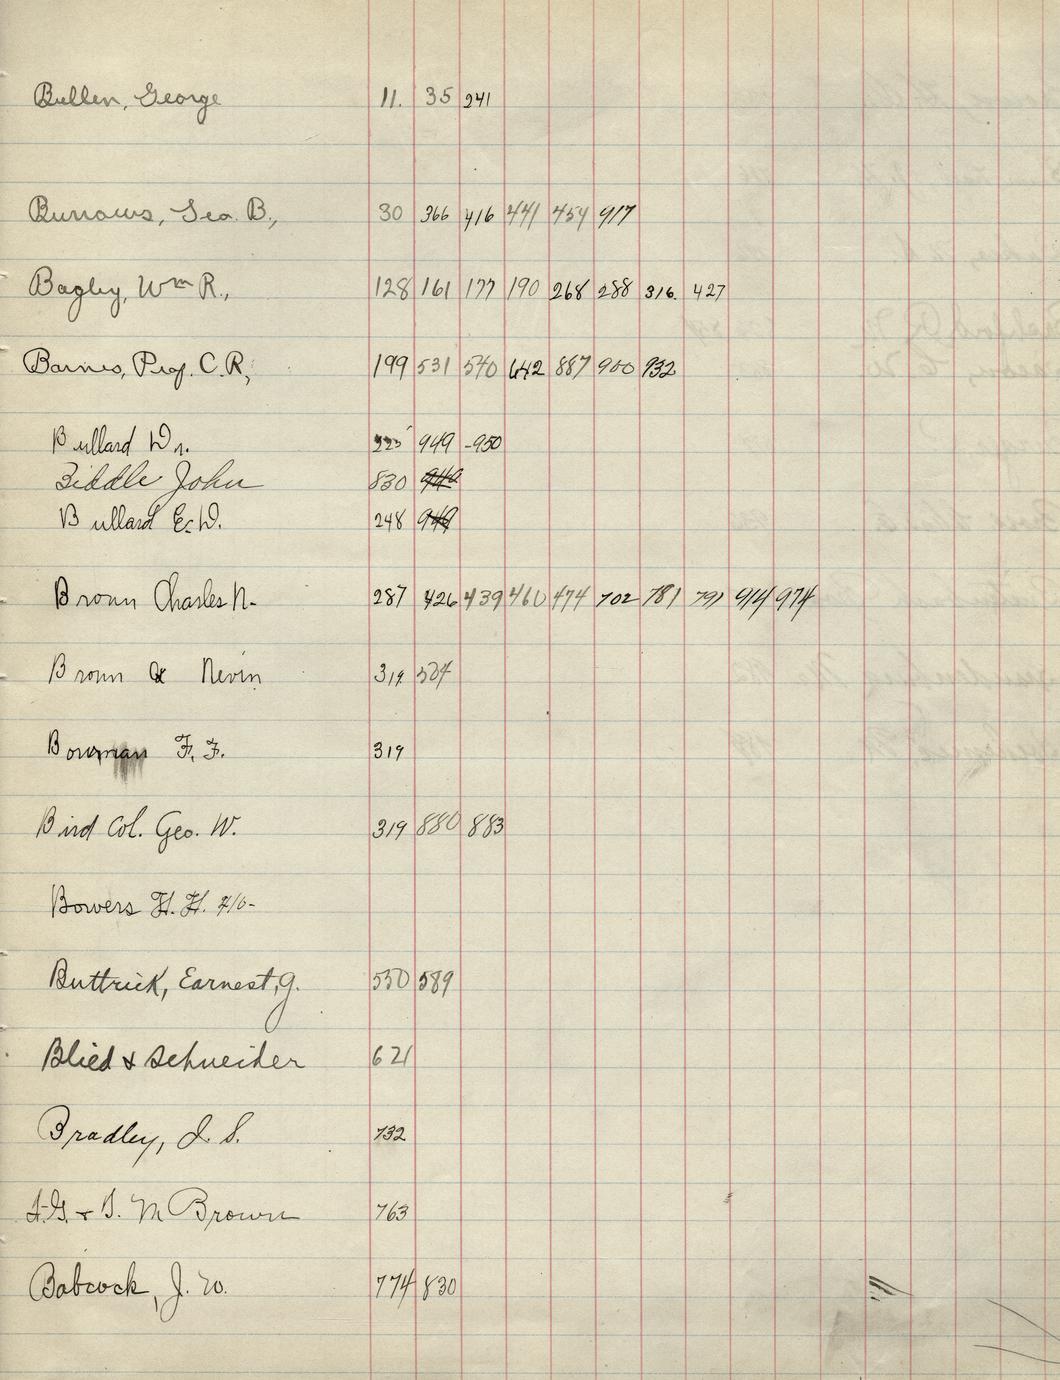 Bullen, George 11. 35 241
Burrows, Geo. B., 30 366 416 441 454 917
Bagley, Wm R., 128 161 177 190 268 288 316. 427
Barnes, Prof. C. R, 199 531 540 642 887 900 932
Bullard Dr. 225 949 -950
Biddle John 830
Bullard E. D. 248 949
Brown Charles N- 287 426 439 460 474 702 781 791 914 974
Brown & Nevin 319 504
Bowman F. F. 319
Bird Col. Geo. W. 319 880 883
Bowers H. H. 416-
Buttrick, Earnest, G. 550 589
Blied & Schneider 621
Bradley, I. S. 732
F. G. & T. M Brown 763
Babcock, J. W. 774 830